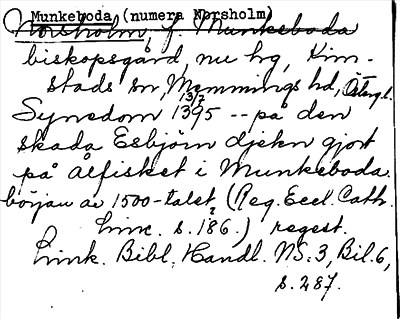 Munkeboda (numera Norsholm)
Norsholm, f. Munkeboda
biskopsgård, nu hg, Kim-
stads sn, Memmings hd, Östergl.
13/7
Synedom 1395 -- på den
skada Esbjörn djekn gjort
på ålfisket i Munkeboda.
början av 1500-talet (Reg. Eccl. Cath.
Linc. s. 186.) regest.
Link. Bibl. Handl. NS:3, Bil.6,
s. 287.